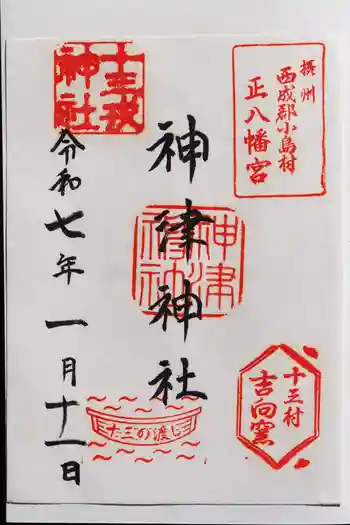 摂州
西成郡小島村
正八幡宮
神津神社
神津神社
十三村
吉向窯
十三戎神社
令和七年一月十一日
十三の渡し